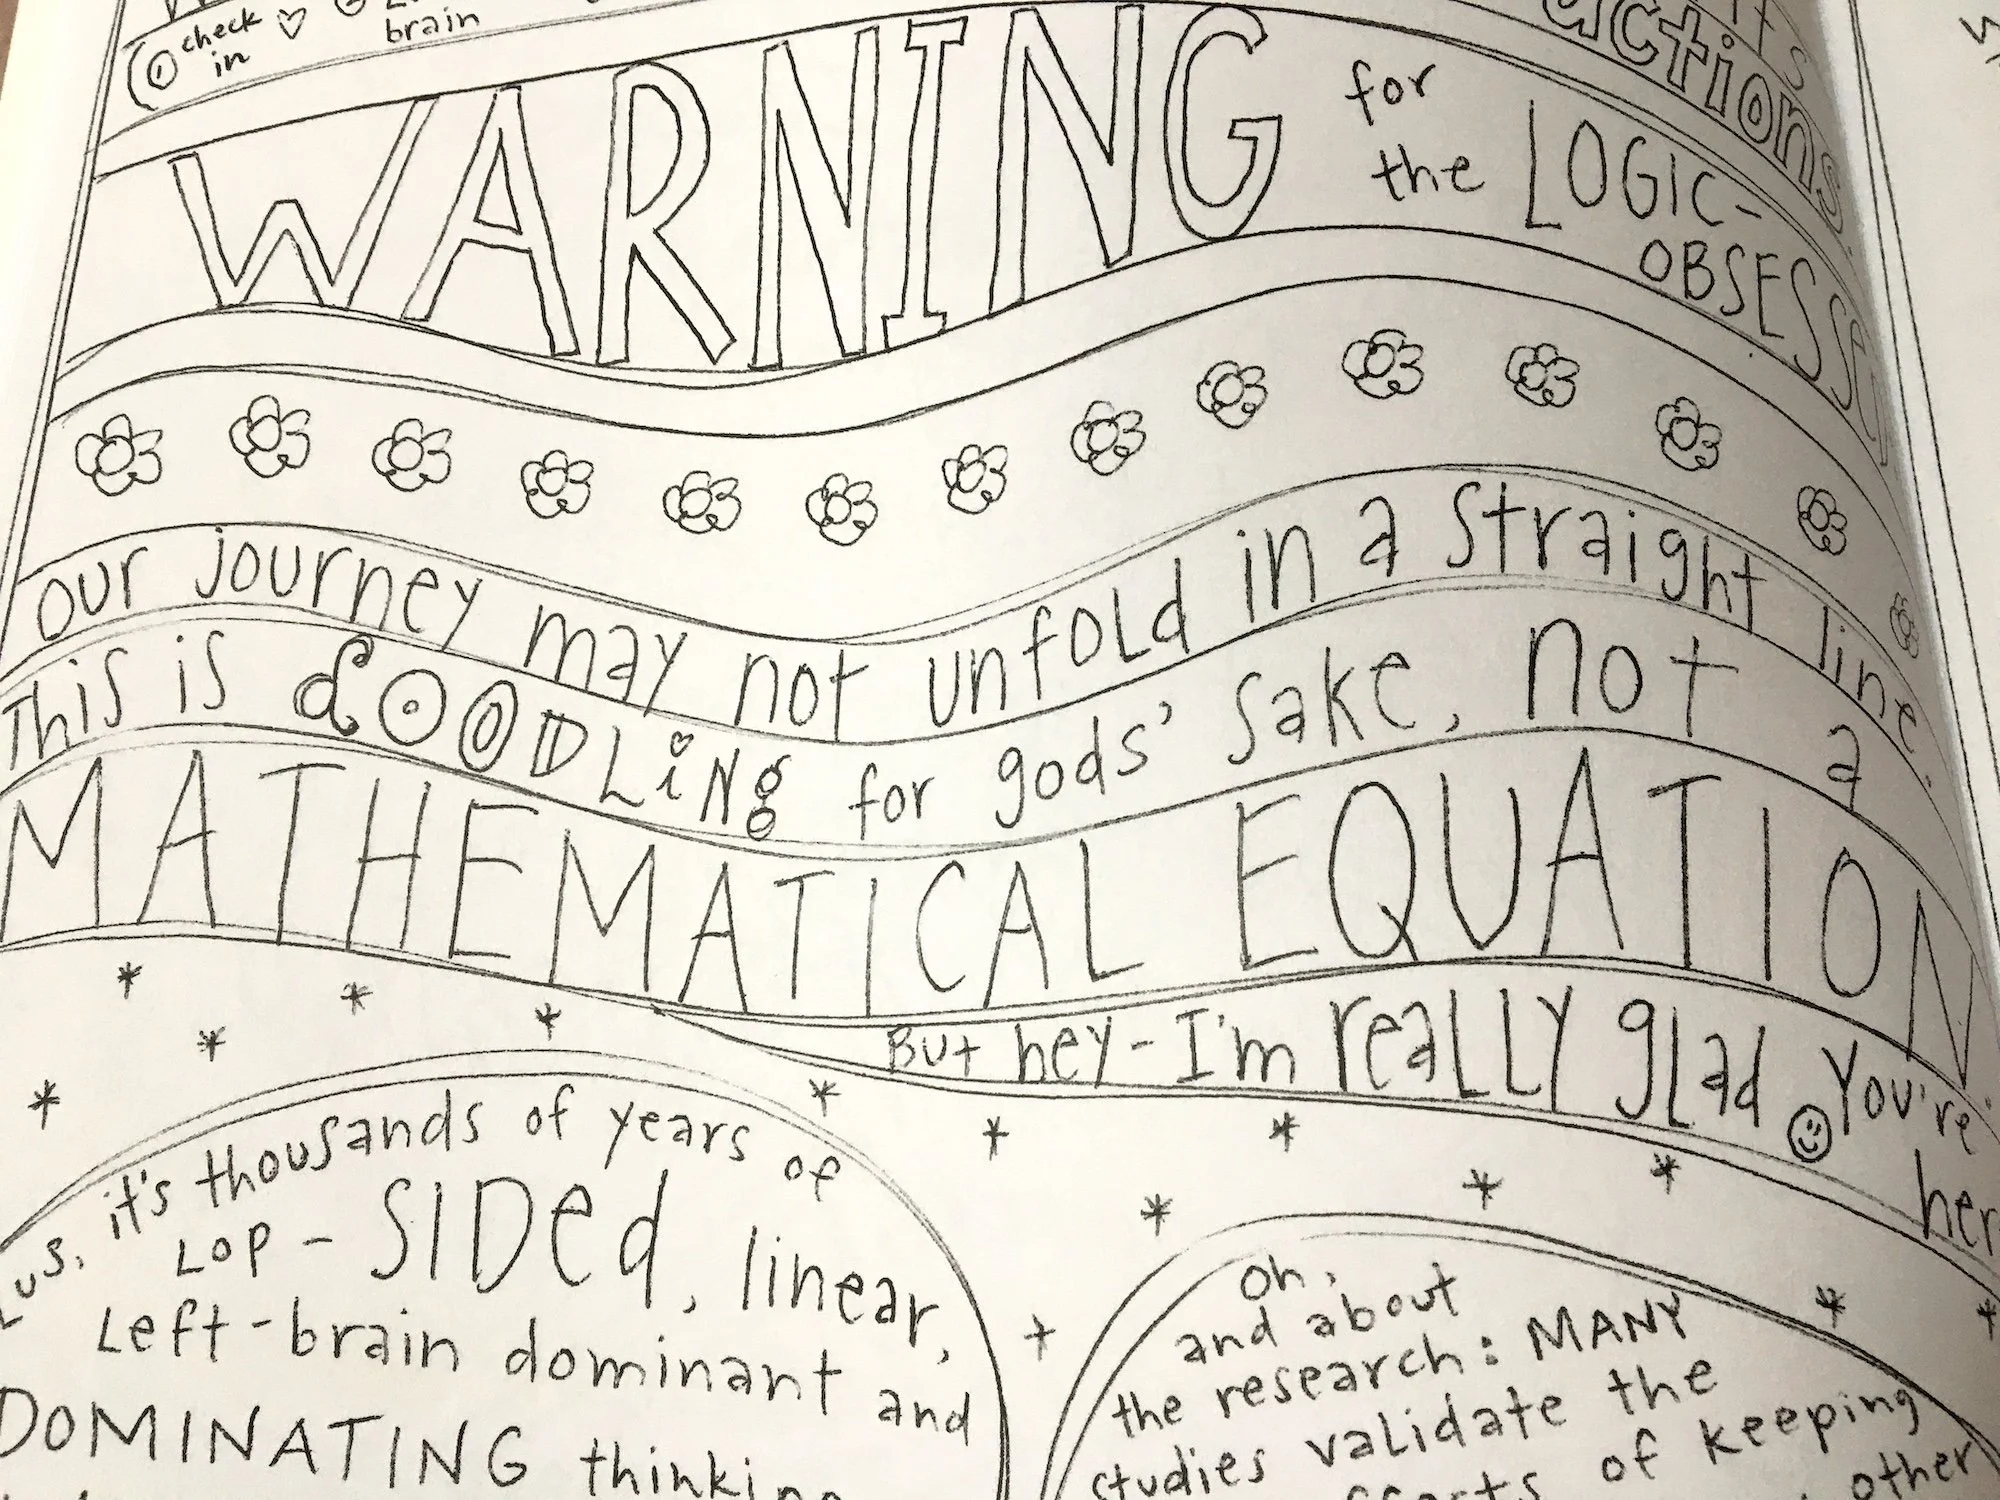 check
in
brain
actions
it's
WARNING for
the LOGIC-
OBSESSED
our journey may not unfold in a straight line.
This is dOODLiNg for gods' sake, not a
MATHEMATICAL EQUATION
But hey - I'm reaLLY gLad You're
here
us, it's thousands of years of
Lop - SIDed, linear,
Left-brain dominant and
DOMINATING thinking
oh,
and about
the research: MANY
studies validate the
of keeping
other